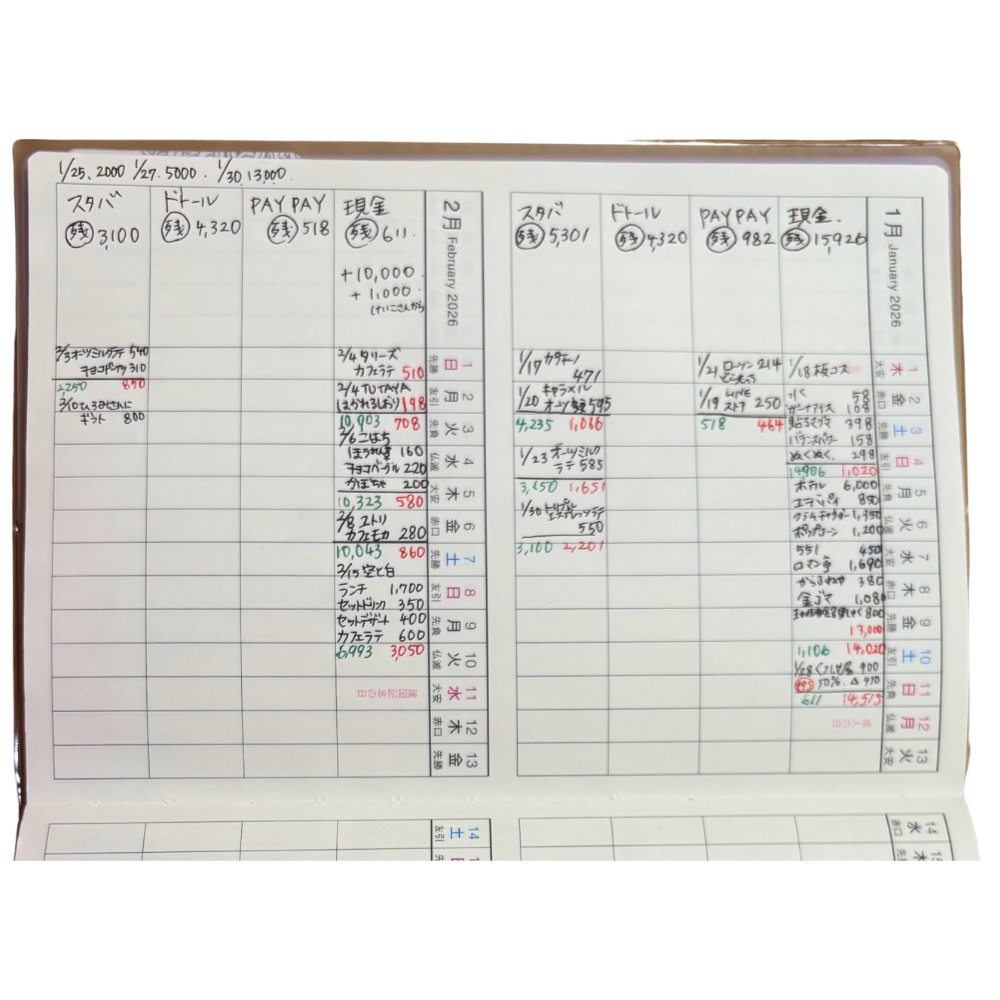 1/25. 2000 1/27. 5000. 1/30, 13,000.
スタバ
残 3,100
2/3 オーツミルクラテ 540
チョコドーナツ 310
2,250 850
2/10 ひろみさんに
ギフト 800
ドトール
残 4,320
PAY PAY
残 518
現金
残 611.
+10,000.
+1,000.
(けいこさんから
2/4 タリーズ
カフェラテ 510
2/4 TUTAYA
198
10,003 708
2/6 こはち
160
チョコベーグル 220
かぼちゃ 200
10,323 580
2/8 ユトリ
カフェモカ 280
10,043 860
2/15 空と白
ランチ 1,700
セットドリンク 350
セットデザート 400
カフェラテ 600
6,993 3,050
2月 February 2026
1 日 先勝
2 月 友引
3 火 先負
4 水 仏滅
5 木 大安
6 金 赤口
7 土 先勝
8 日 友引
9 月 先負
10 火 仏滅
11 水 大安 建国記念の日
12 木 赤口
13 金 先勝
14 土 友引
スタバ
残 5,301
1/17 カプチーノ
471
1/20 キャラメル
オーツ 595
4,235 1,066
1/23 オーツミルク
ラテ 585
3,650 1,651
1/30 トリプル
エスプレッソラテ
550
3,100 2,201
ドトール
残 4,320
PAY PAY
残 982
1/21 ローソン 214
1/19 LINE
ストア 250
518 464
現金.
残 15,926
1/18 板コス
58
108
398
バランスパワー 158
ぬくぬく. 298
14,906 1,020
ホテル 6,000
エデュパイ 850
クラムチャウダー 1,350
ポップコーン 1,200
551 450
ロマン亭 1,690
380
金ゴマ 1,080
800
13,000
1,106 14,020
1/28 900
495 50%. △ 450
611 14,515
1月 January 2026
1 木 大安
2 金 赤口
3 土 先勝
4 日 友引
5 月 先負
6 火 仏滅
7 水 大安
8 木 赤口
9 金 先勝
10 土 友引
11 日 先負
12 月 仏滅 成人の日
13 火 大安
14 水 赤口
木 先勝